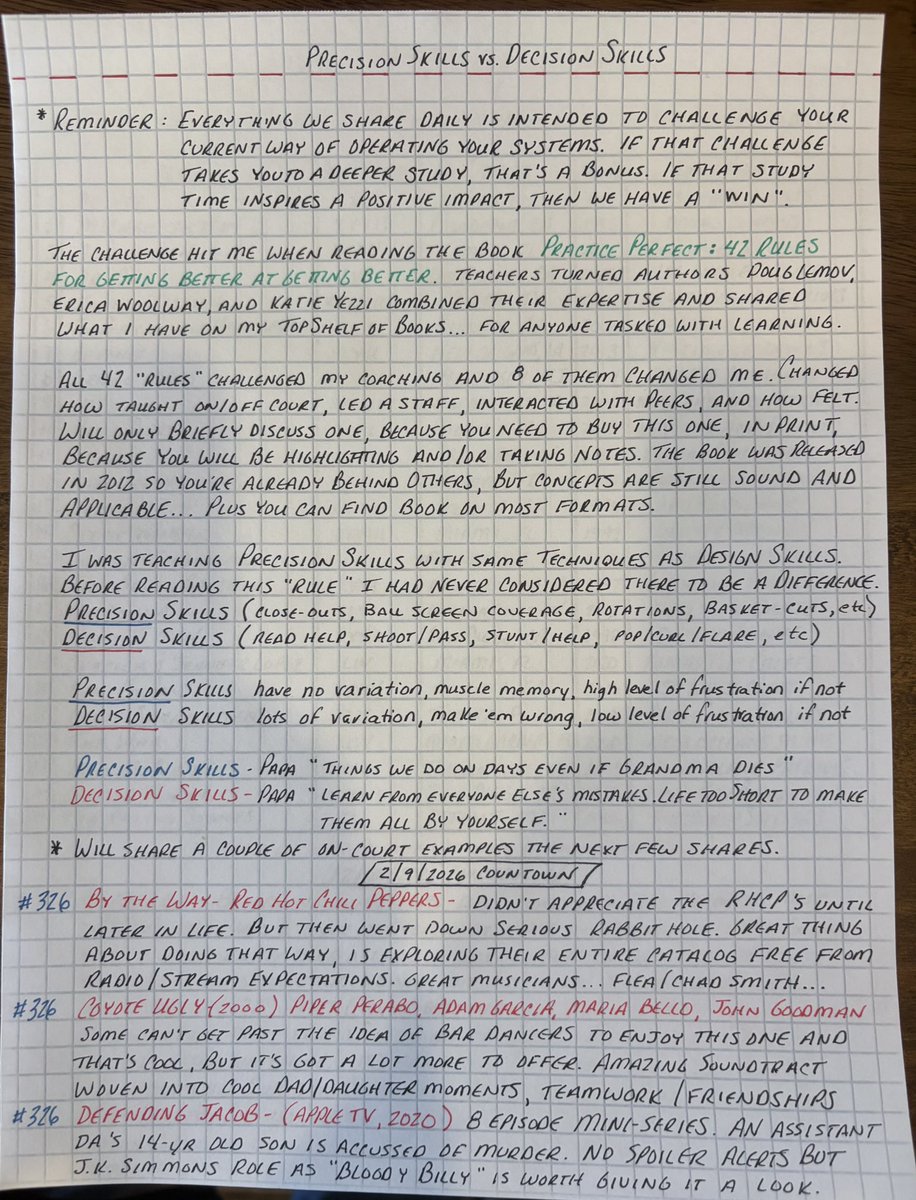 PRECISION SKILLS vs. DECISION SKILLS
* REMINDER: EVERYTHING WE SHARE DAILY IS INTENDED TO CHALLENGE YOUR
CURRENT WAY OF OPERATING YOUR SYSTEMS. IF THAT CHALLENGE
TAKES YOU TO A DEEPER STUDY, THAT'S A BONUS. IF THAT STUDY
TIME INSPIRES A POSITIVE IMPACT, THEN WE HAVE A "WIN".
THE CHALLENGE HIT ME WHEN READING THE BOOK PRACTICE PERFECT: 42 RULES
FOR GETTING BETTER AT GETTING BETTER. TEACHERS TURNED AUTHORS DOUG LEMOV,
ERICA WOOLWAY, AND KATIE YEZZI COMBINED THEIR EXPERTISE AND SHARED
WHAT I HAVE ON MY TOP SHELF OF BOOKS... FOR ANYONE TASKED WITH LEARNING.
ALL 42 "RULES" CHALLENGED MY COACHING AND 8 OF THEM CHANGED ME. CHANGED
HOW TAUGHT ON/OFF COURT, LED A STAFF, INTERACTED WITH PEERS, AND HOW FELT.
WILL ONLY BRIEFLY DISCUSS ONE, BECAUSE YOU NEED TO BUY THIS ONE, IN PRINT,
BECAUSE YOU WILL BE HIGHLIGHTING AND/OR TAKING NOTES. THE BOOK WAS RELEASED
IN 2012 SO YOU'RE ALREADY BEHIND OTHERS, BUT CONCEPTS ARE STILL SOUND AND
APPLICABLE... PLUS YOU CAN FIND BOOK ON MOST FORMATS.
I WAS TEACHING PRECISION SKILLS WITH SAME TECHNIQUES AS DESIGN SKILLS.
BEFORE READING THIS "RULE" I HAD NEVER CONSIDERED THERE TO BE A DIFFERENCE.
PRECISION SKILLS (CLOSE-OUTS, BALL SCREEN COVERAGE, ROTATIONS, BASKET-CUTS, etc)
DECISION SKILLS (READ HELP, SHOOT/PASS, STUNT/HELP, POP/CURL/FLARE, etc)
PRECISION SKILLS have no variation, muscle memory, high level of frustration if not
DECISION SKILLS lots of variation, make 'em wrong, low level of frustration if not
PRECISION SKILLS - PAPA "THINGS WE DO ON DAYS EVEN IF GRANDMA DIES"
DECISION SKILLS - PAPA "LEARN FROM EVERYONE ELSE'S MISTAKES. LIFE TOO SHORT TO MAKE
THEM ALL BY YOURSELF."
* WILL SHARE A COUPLE OF ON-COURT EXAMPLES THE NEXT FEW SHARES.
2/9/2026 COUNTOWN
#326 BY THE WAY - RED HOT CHILI PEPPERS - DIDN'T APPRECIATE THE RHCP'S UNTIL
LATER IN LIFE. BUT THEN WENT DOWN SERIOUS RABBIT HOLE. GREAT THING
ABOUT DOING THAT WAY, IS EXPLORING THEIR ENTIRE CATALOG FREE FROM
RADIO/STREAM EXPECTATIONS. GREAT MUSICIANS... FLEA/CHAD SMITH...
#326 COYOTE UGLY (2000) PIPER PERABO, ADAM GARCIA, MARIA BELLO, JOHN GOODMAN
SOME CAN'T GET PAST THE IDEA OF BAR DANCERS TO ENJOY THIS ONE AND
THAT'S COOL, BUT IT'S GOT A LOT MORE TO OFFER. AMAZING SOUNDTRACT
WOVEN INTO COOL DAD/DAUGHTER MOMENTS, TEAMWORK/FRIENDSHIPS
#326 DEFENDING JACOB - (APPLE TV, 2020) 8 EPISODE MINI-SERIES. AN ASSISTANT
DA'S 14-YR OLD SON IS ACCUSSED OF MURDER. NO SPOILER ALERTS BUT
J.K. SIMMONS ROLE AS "BLOODY BILLY" IS WORTH GIVING IT A LOOK.